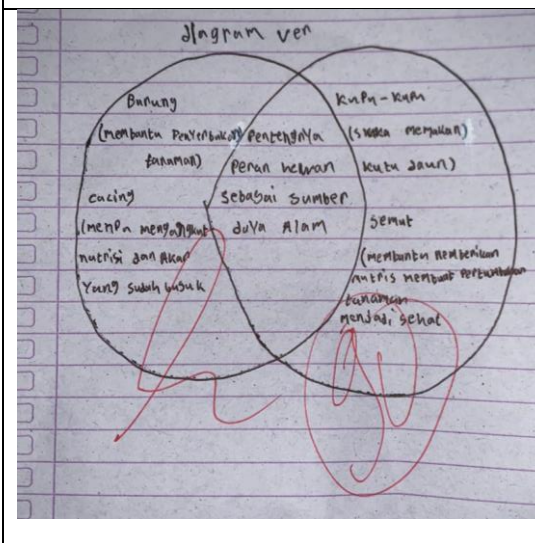 diagram ven
Burung
(membantu Penyerbukan
tanaman)
cacing
mengangkut
nutrisi dan Akar
Yang sudah busuk
Pentengnya
Peran hewan
sebagai sumber
daya Alam
Kupu-Kupu
(suka memakan)
kutu daun)
semut
(membantu memberikan
nutris membuat Pertumbuhan
tanaman
menjadi sehat
90